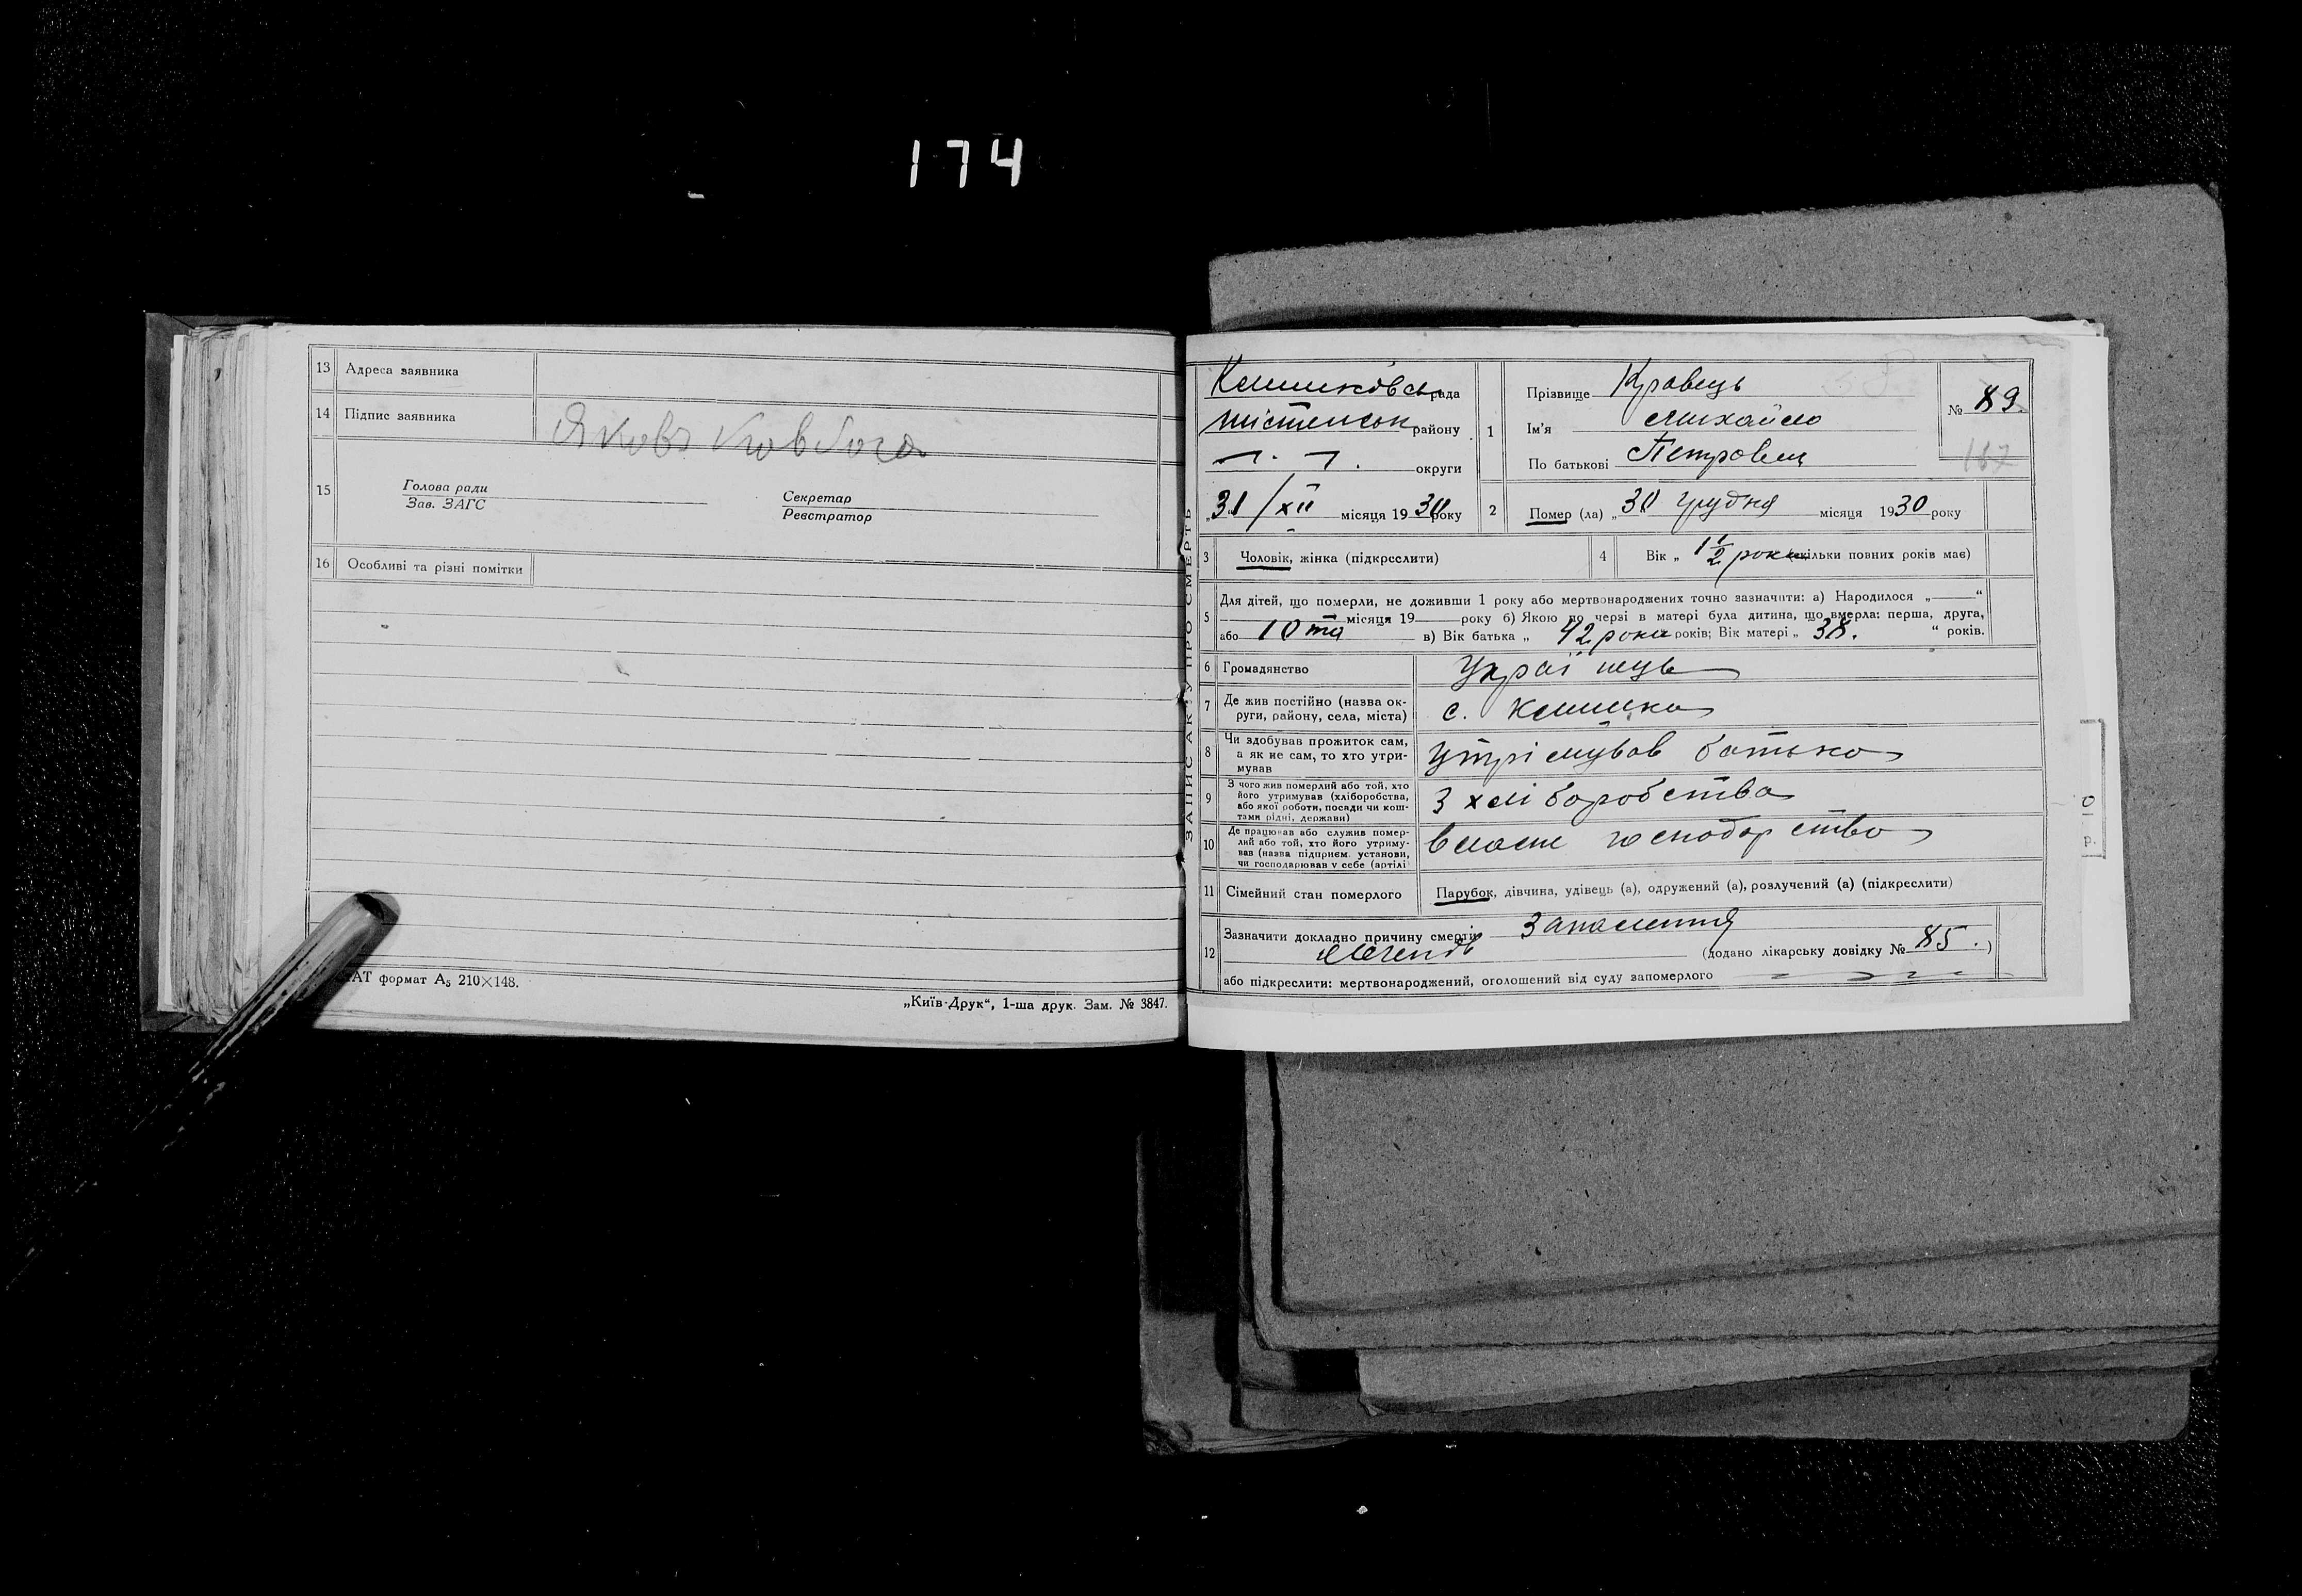 174
13 Адреса заявника
14 Підпис заявника
Яковъ Ковбога
15 Голова ради
Зав. ЗАГС
Секретар
Реєстратор
16 Особливі та різні помітки
ДАТ формат А₅ 210×148.
„Київ-Друк“, 1-ша друк. Зам. № 3847.
ЗАПИС АКТУ ПРО СМЕРТЬ
Клишківськ рада
району
округи
„31/XII місяця 1930 року
1 Прізвище Кравець
Ім'я Михайло
По батькові Петровец
№ 89.
187
2 Помер (ла) „30 грудня місяця 1930 року
3 Чоловік, жінка (підкреслити)
4 Вік „ 1 1/2 роки (скільки повних років має)
5 Для дітей, що померли, не доживши 1 року або мертвонароджених точно зазначити: а) Народилося „ “
місяця 19 року б) Якою по черзі в матері була дитина, що вмерла: перша, друга,
або 10 та в) Вік батька „ 42 роки років; Вік матері „ 38. “ років.
6 Громадянство Украї нець
7 Де жив постійно (назва ок-
руги, району, села, міста) с. Клишки
8 Чи здобував прожиток сам,
а як не сам, то хто утри-
мував Утрімував батько
9 З чого жив померлий або той, хто
його утримував (хліборобства,
або якої роботи, посади чи кош-
тами рідні, держави) З хліборобства
10 Де працював або служив помер-
лий або той, хто його утриму-
вав (назва підприєм. установи,
чи господарював у себе (артілі власне господарство
11 Сімейний стан померлого Парубок, дівчина, удівець (а), одружений (а), розлучений (а) (підкреслити)
12 Зазначити докладно причину смерти Запалення
легенів (додано лікарську довідку № 85.)
або підкреслити: мертвонароджений, оголошений від суду запомерлого
0
р.